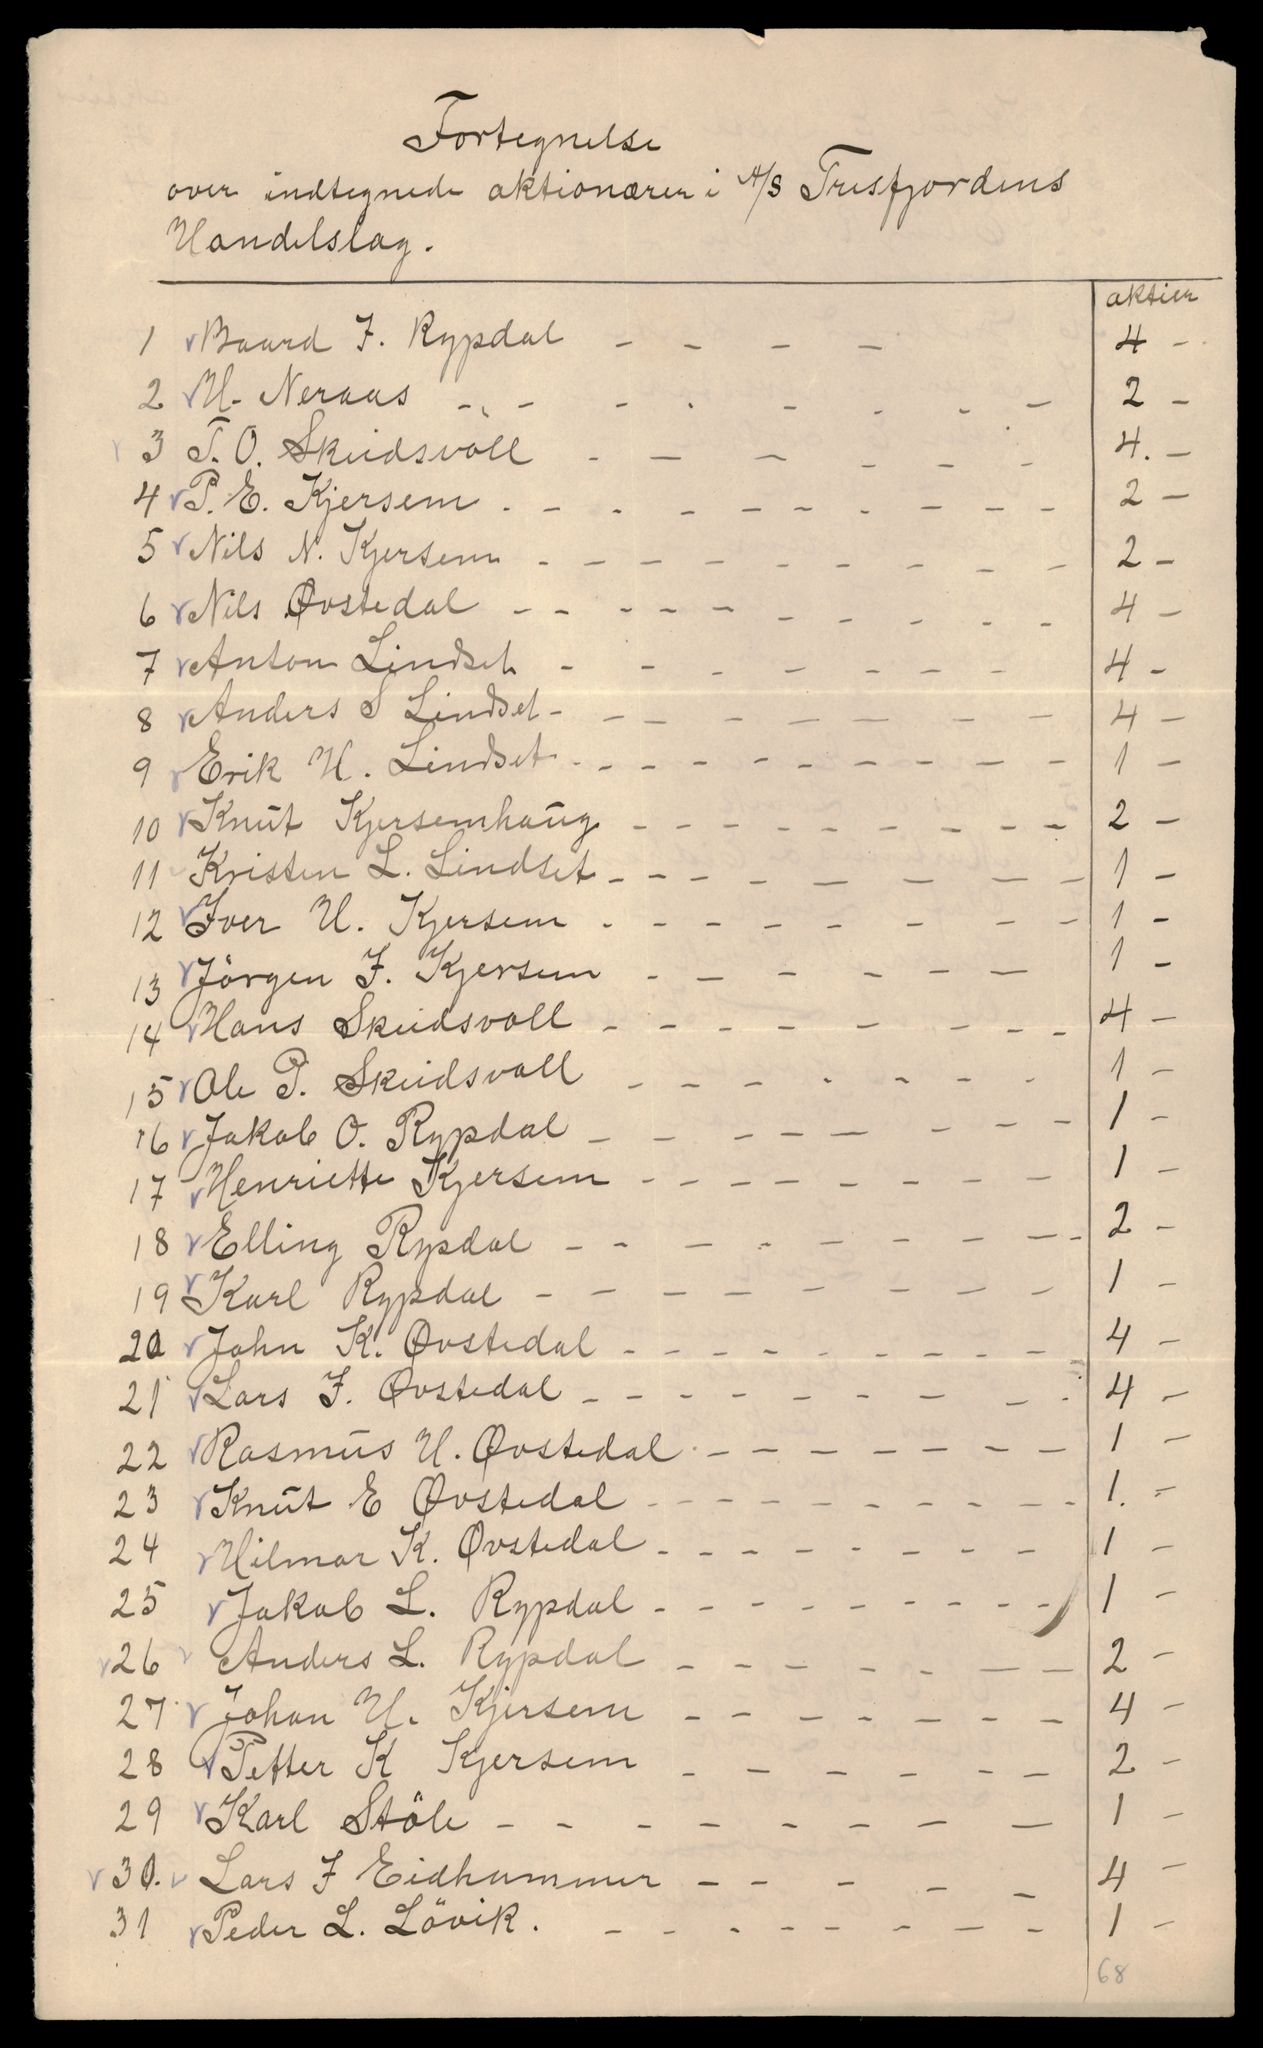 Fortegnelse
over indtegnede aktionærer i A/S Tresfjordens
Handelslag.
aktier
1 Baard J. Rypdal - - - - 4 -
2 H. Neraas - - - - - - - - 2 -
3 T. O. Skeidsvoll - - - - - - 4. -
4 P. E. Kjersem - - - - - - - - - 2 -
5 Nils N. Kjersem - - - - - - - - - 2 -
6 Nils Øvstedal - - - - - - - - - 4 -
7 Anton Lindset - - - - - - - 4 -
8 Anders S Lindset - - - - - - - - 4 -
9 Erik H. Lindset - - - - - - - - - - 1 -
10 Knut Kjersemhaug - - - - - - - - - 2 -
11 Kristen L. Lindset - - - - - - - - 1 -
12 Iver H. Kjersem - - - - - - - - 1 -
13 Jörgen J. Kjersem - - - - - - 1 -
14 Hans Skeidsvoll - - - - - - - - 4 -
15 Ole P. Skeidsvoll - - - - - - - 1 -
16 Jakob O. Rypdal - - - - - - - - 1 -
17 Henriette Kjersem - - - - - - - - 1 -
18 Elling Rypdal - - - - - - - - 2 -
19 Karl Rypdal - - - - - - - - 1 -
20 John K. Øvstedal - - - - - - - - 4 -
21 Lars J. Øvstedal - - - - - - - - 4 -
22 Rasmus H. Øvstedal - - - - - - - 1 -
23 Knut E Øvstedal - - - - - - - - - 1. -
24 Hilmar K. Øvstedal - - - - - - - - 1 -
25 Jakob L. Rypdal - - - - - - - - 1 -
26 Anders L. Rypdal - - - - - - - 2 -
27 Johan H. Kjersem - - - - - - - 4 -
28 Petter K Kjersem - - - - - - 2 -
29 Karl Stöle - - - - - - - - 1 -
30. Lars J Eidhammer - - - - - 4 -
31 Peder L. Lövik. - - - - - - - - 1 -
68